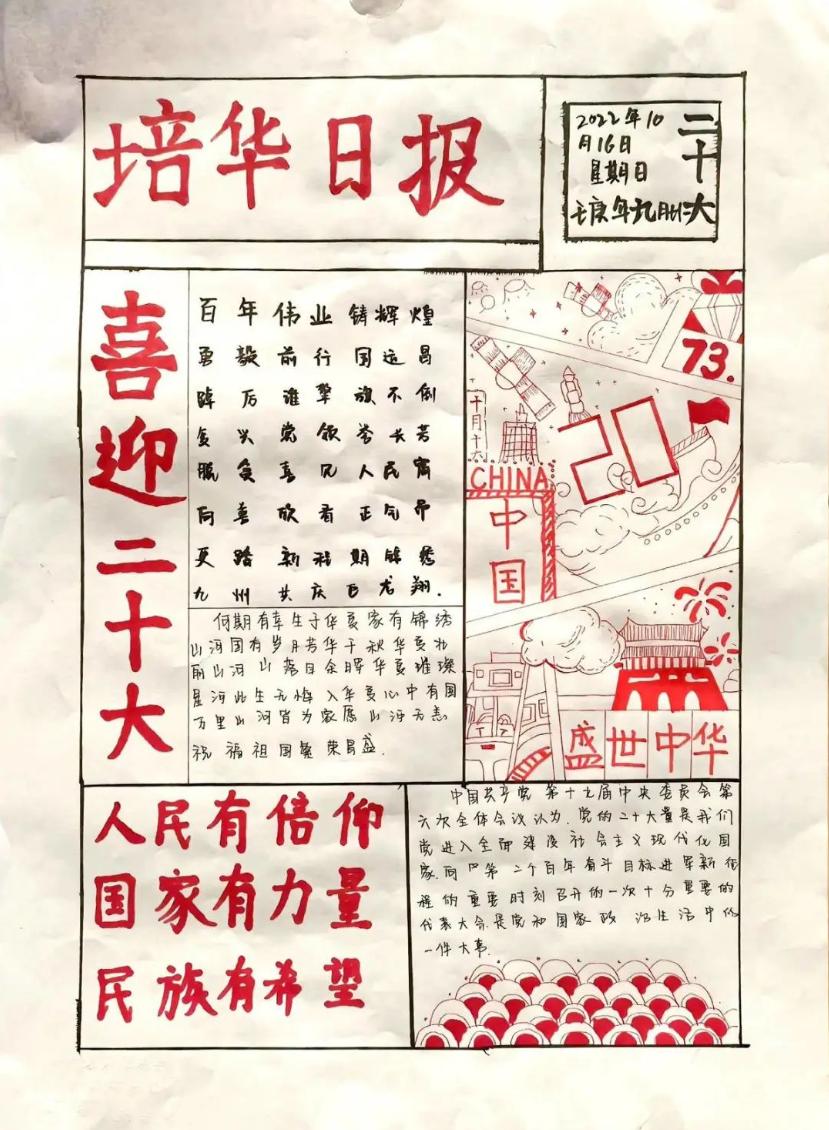 培华日报
2022年10
月16日
星期日
壬庚年九月廿二
二十大
喜迎二十大
百年伟业铸辉煌
勇毅前行国运昌
踔厉谁擎旗不倒
复兴党领誉长芳
服食喜见人民富
向善欣看正气昂
更踏新程期锦绣
九州共庆巨龙翔.
何期有幸生于华夏家有锦绣
山河国有岁月芳华千秋华夏壮
丽山河山落日余晖华夏璀璨
星河此生无悔入华夏心中有国
万里山河皆为家愿山河无恙
祝福祖国繁荣昌盛.
73.
十月十六
20
CHINA
中国
盛世中华
人民有信仰
国家有力量
民族有希望
中国共产党第十九届中央委员会第
六次全体会议认为.党的二十大是我们
党进入全面建设社会主义现代化国
家.向第二个百年奋斗目标进军新征
程的重要时刻召开的一次十分重要的
代表大会.是党和国家政治生活中的
一件大事.